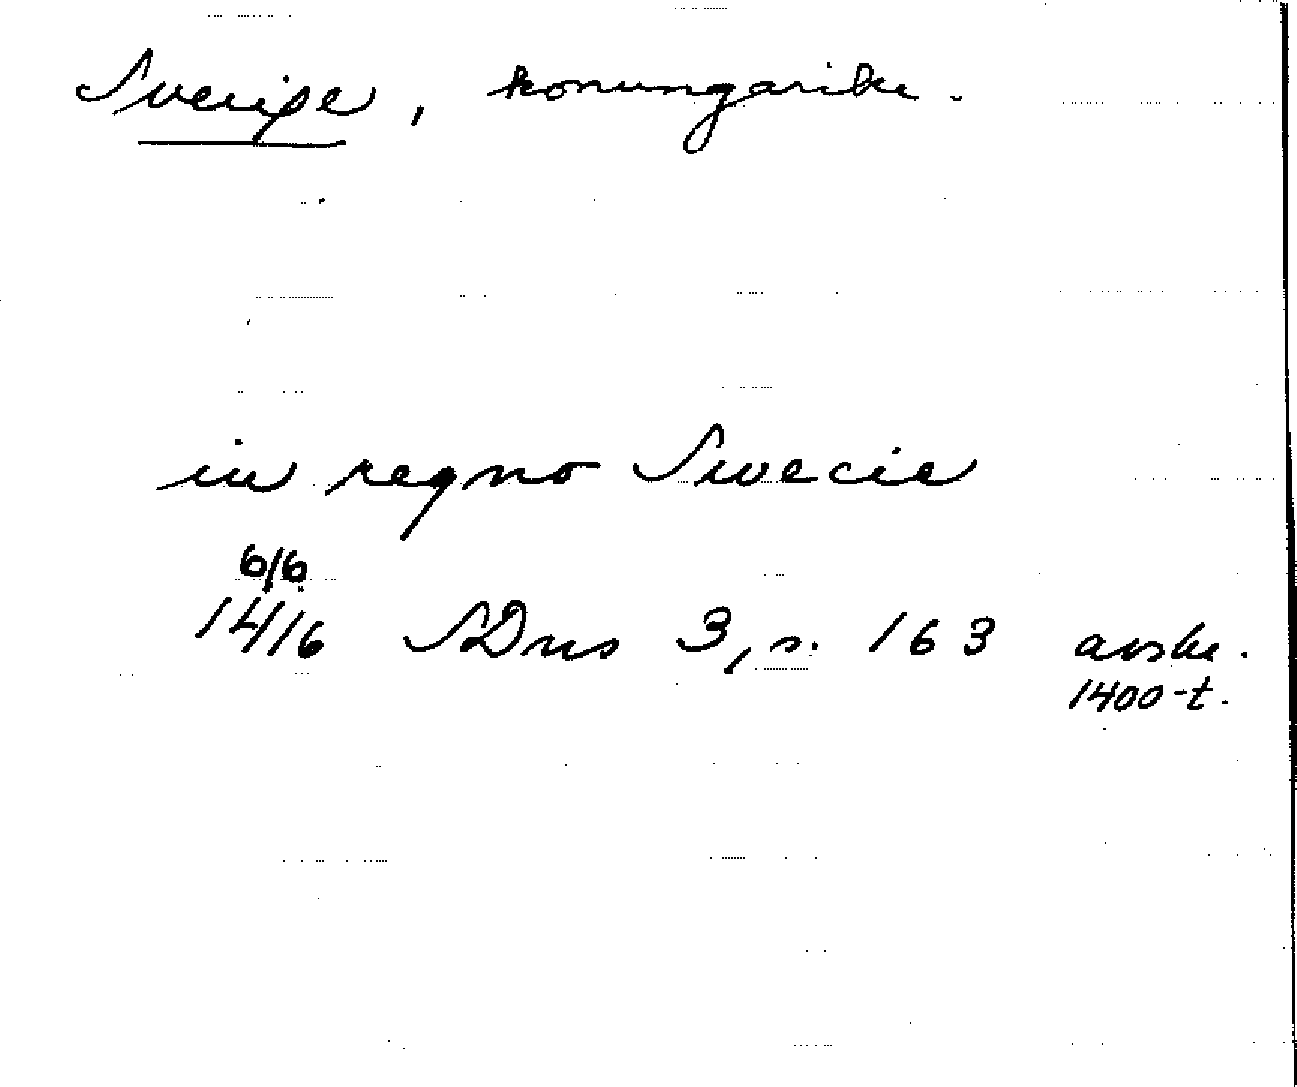 Sverige, konungarike.
in regno Swecie
6/6
1416 SDns 3, s. 163 avskr.
1400-t.